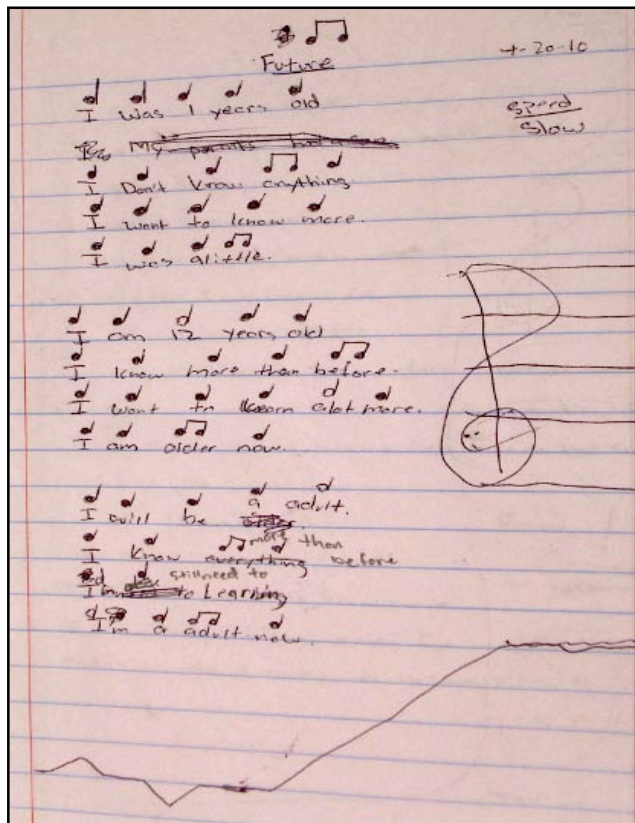 Future
4-20-10
Speed
Slow
I was 1 years old
My parents
I Don't know anything.
I want to know more.
I was alittle.
I am 12 years old
I know more than before.
I want to learn alot more.
I am older now.
I will be a adult.
I know everything more than before
I still need to Learning
I'm a adult now.